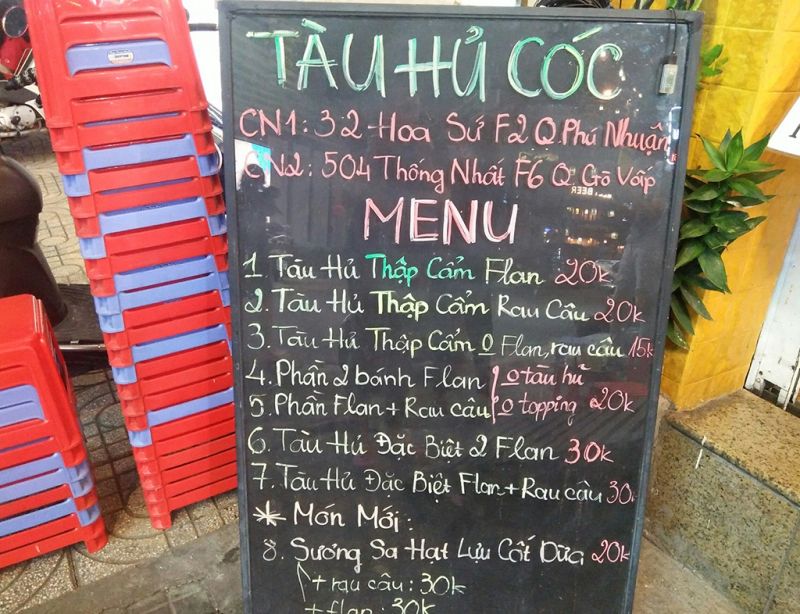 TÀU HỦ CỐC
CN1: 32 Hoa Sứ F2 Q.Phú Nhuận
CN2: 504 Thống Nhất F6 Q. Gò Vấp
MENU
1. Tàu Hủ Thập Cẩm Flan 20k
2. Tàu Hủ Thập Cẩm Rau Câu 20k
3. Tàu Hủ Thập Cẩm 0 Flan, rau câu 15k
4. Phần 2 bánh Flan 0 tàu hủ
5. Phần Flan + Rau câu 0 topping 20k
6. Tàu Hủ Đặc Biệt 2 Flan 30k
7. Tàu Hủ Đặc Biệt Flan + Rau câu 30k
* Món Mới:
8. Sương Sa Hạt Lựu Cốt Dừa 20k
+ rau câu: 30k
+ flan: 30k